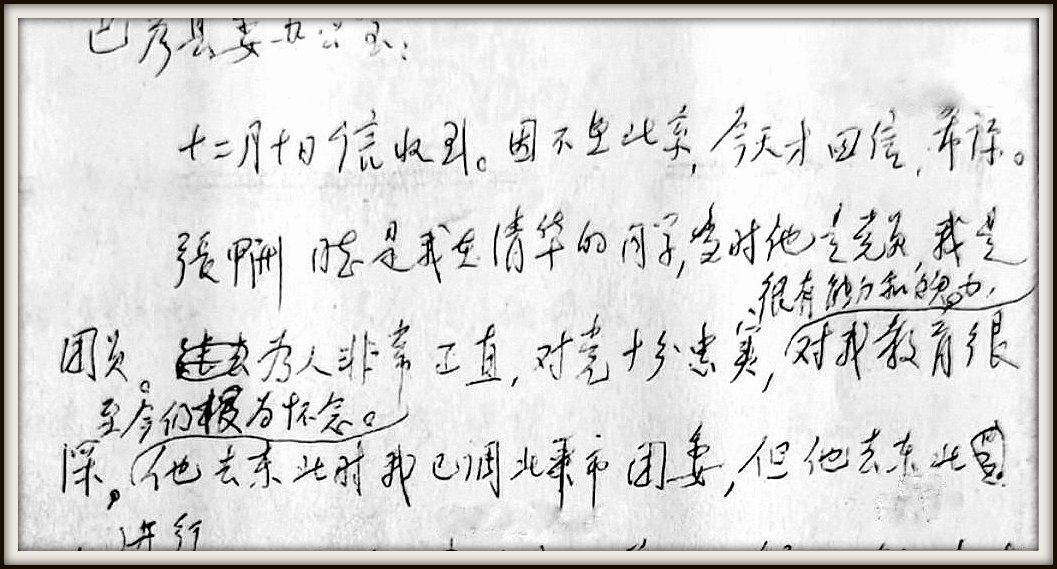 巴彦县委办公室：
十二月十日信收到。因不在北京，今天才回信，希谅。
張甲洲 同志是我在清华的同学，当时他是党员，我是
很有能力和魄力，
团员。为人非常正直，对党十分忠实，对我教育很
至今仍极为怀念。
深。他去东北时我已调北京市团委，但他去东北
进行